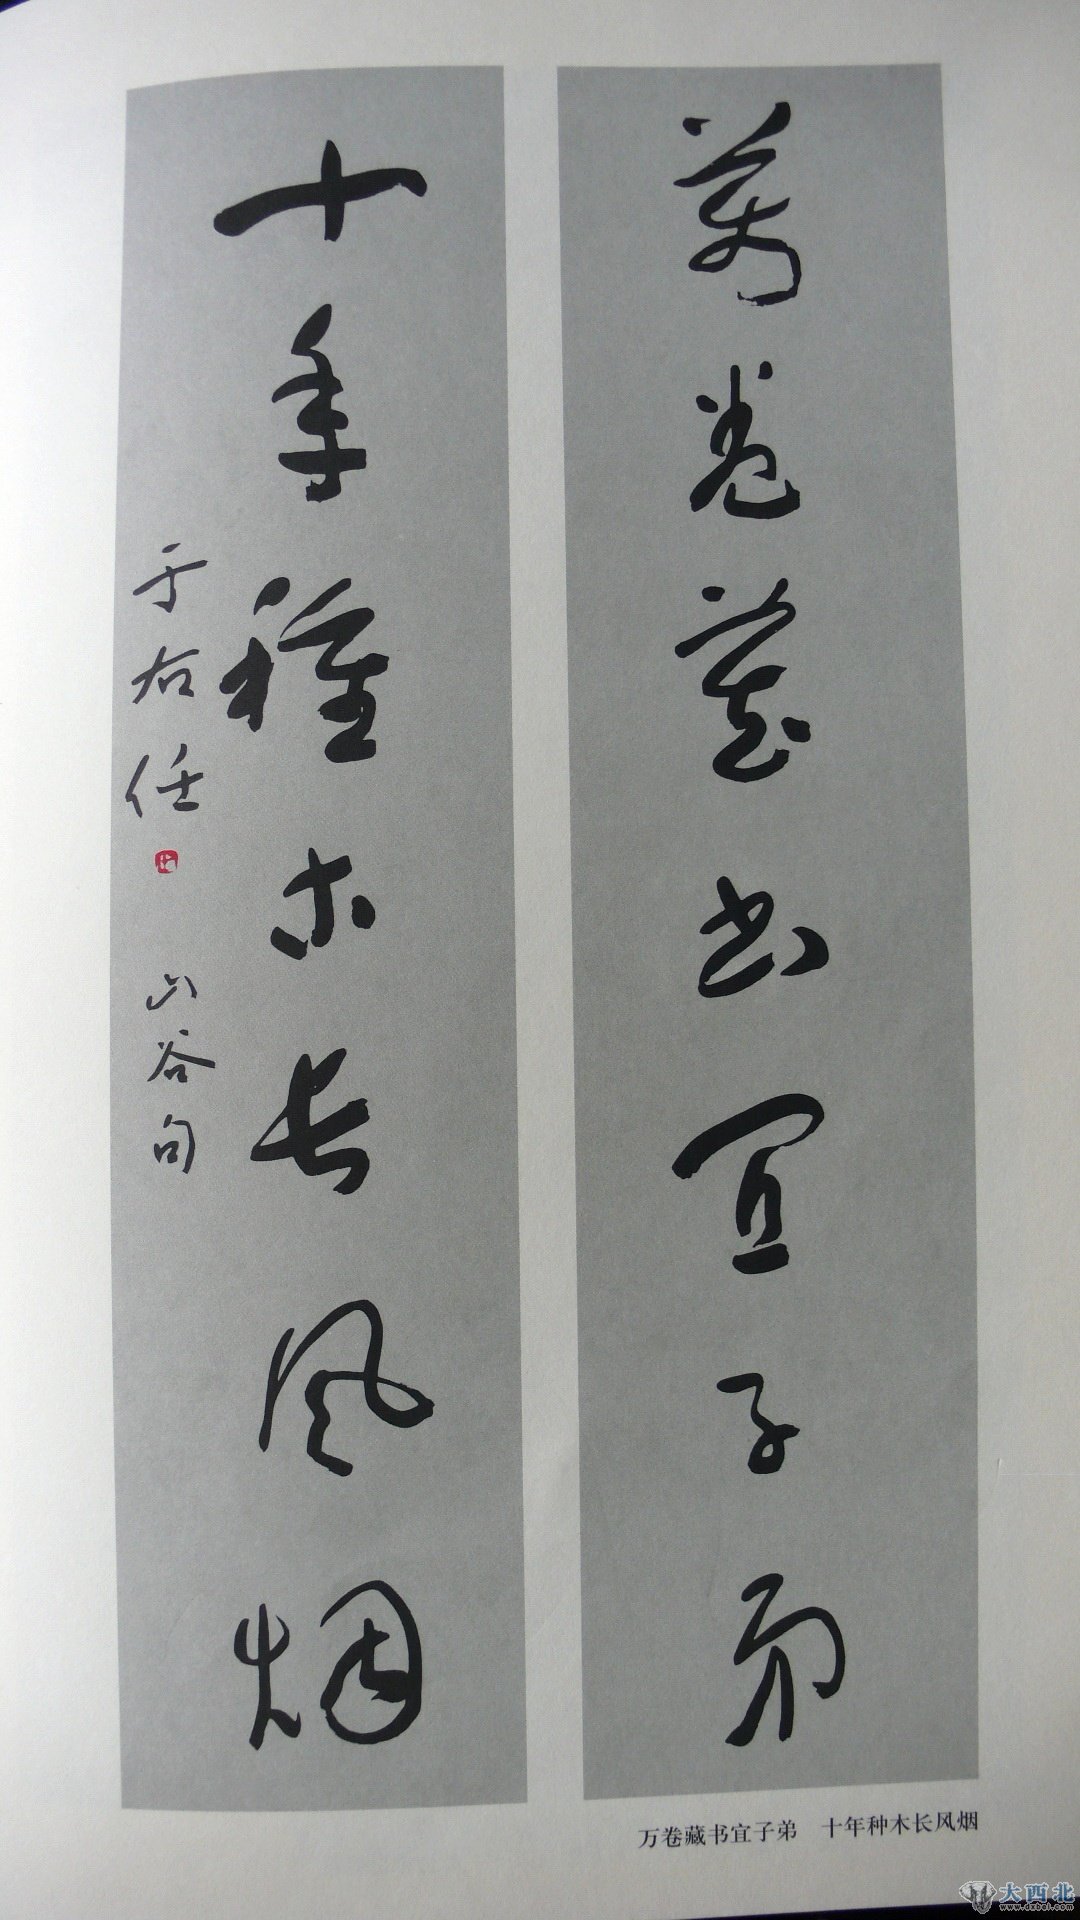 萬卷藏书宜子弟
十年種木长风烟
于右任
山谷句
万卷藏书宜子弟 十年种木长风烟
大西北
www.dxbei.com